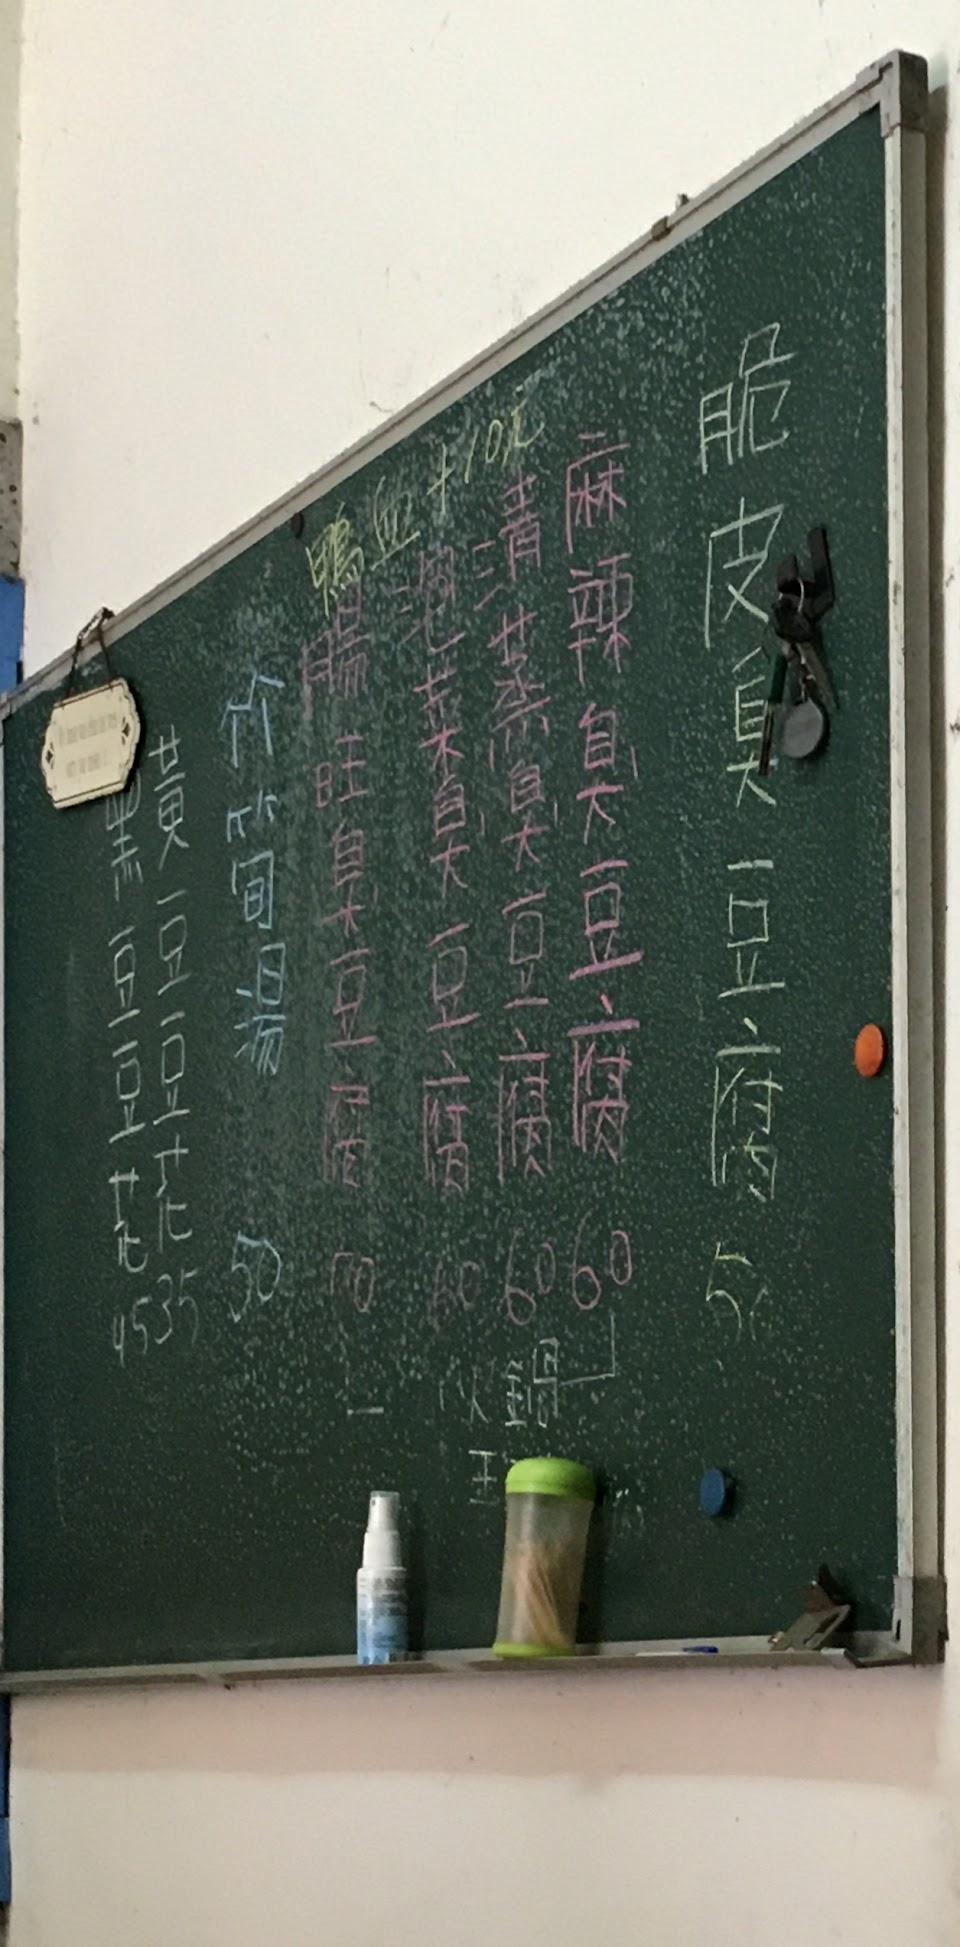 脆皮臭豆腐
麻辣臭豆腐 60
清蒸臭豆腐 60
泡菜臭豆腐
鴨血+10元
腸旺臭豆腐
竹筍湯 50
黃豆豆花 35
黑豆豆花 45
火鍋